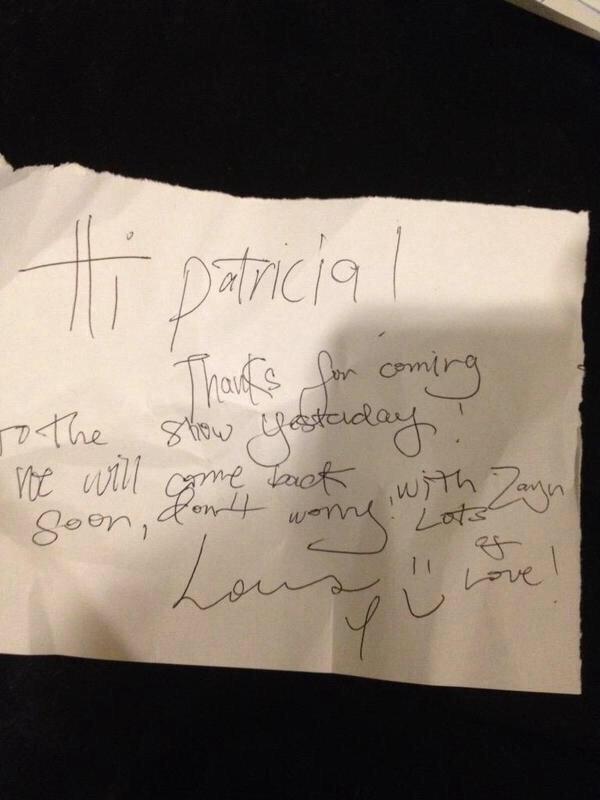 Hi Patricia!
Thanks for coming
to the show yestaday!
We will come back
soon, don't worry, with Zayn
Lots
of
Love!
Louis